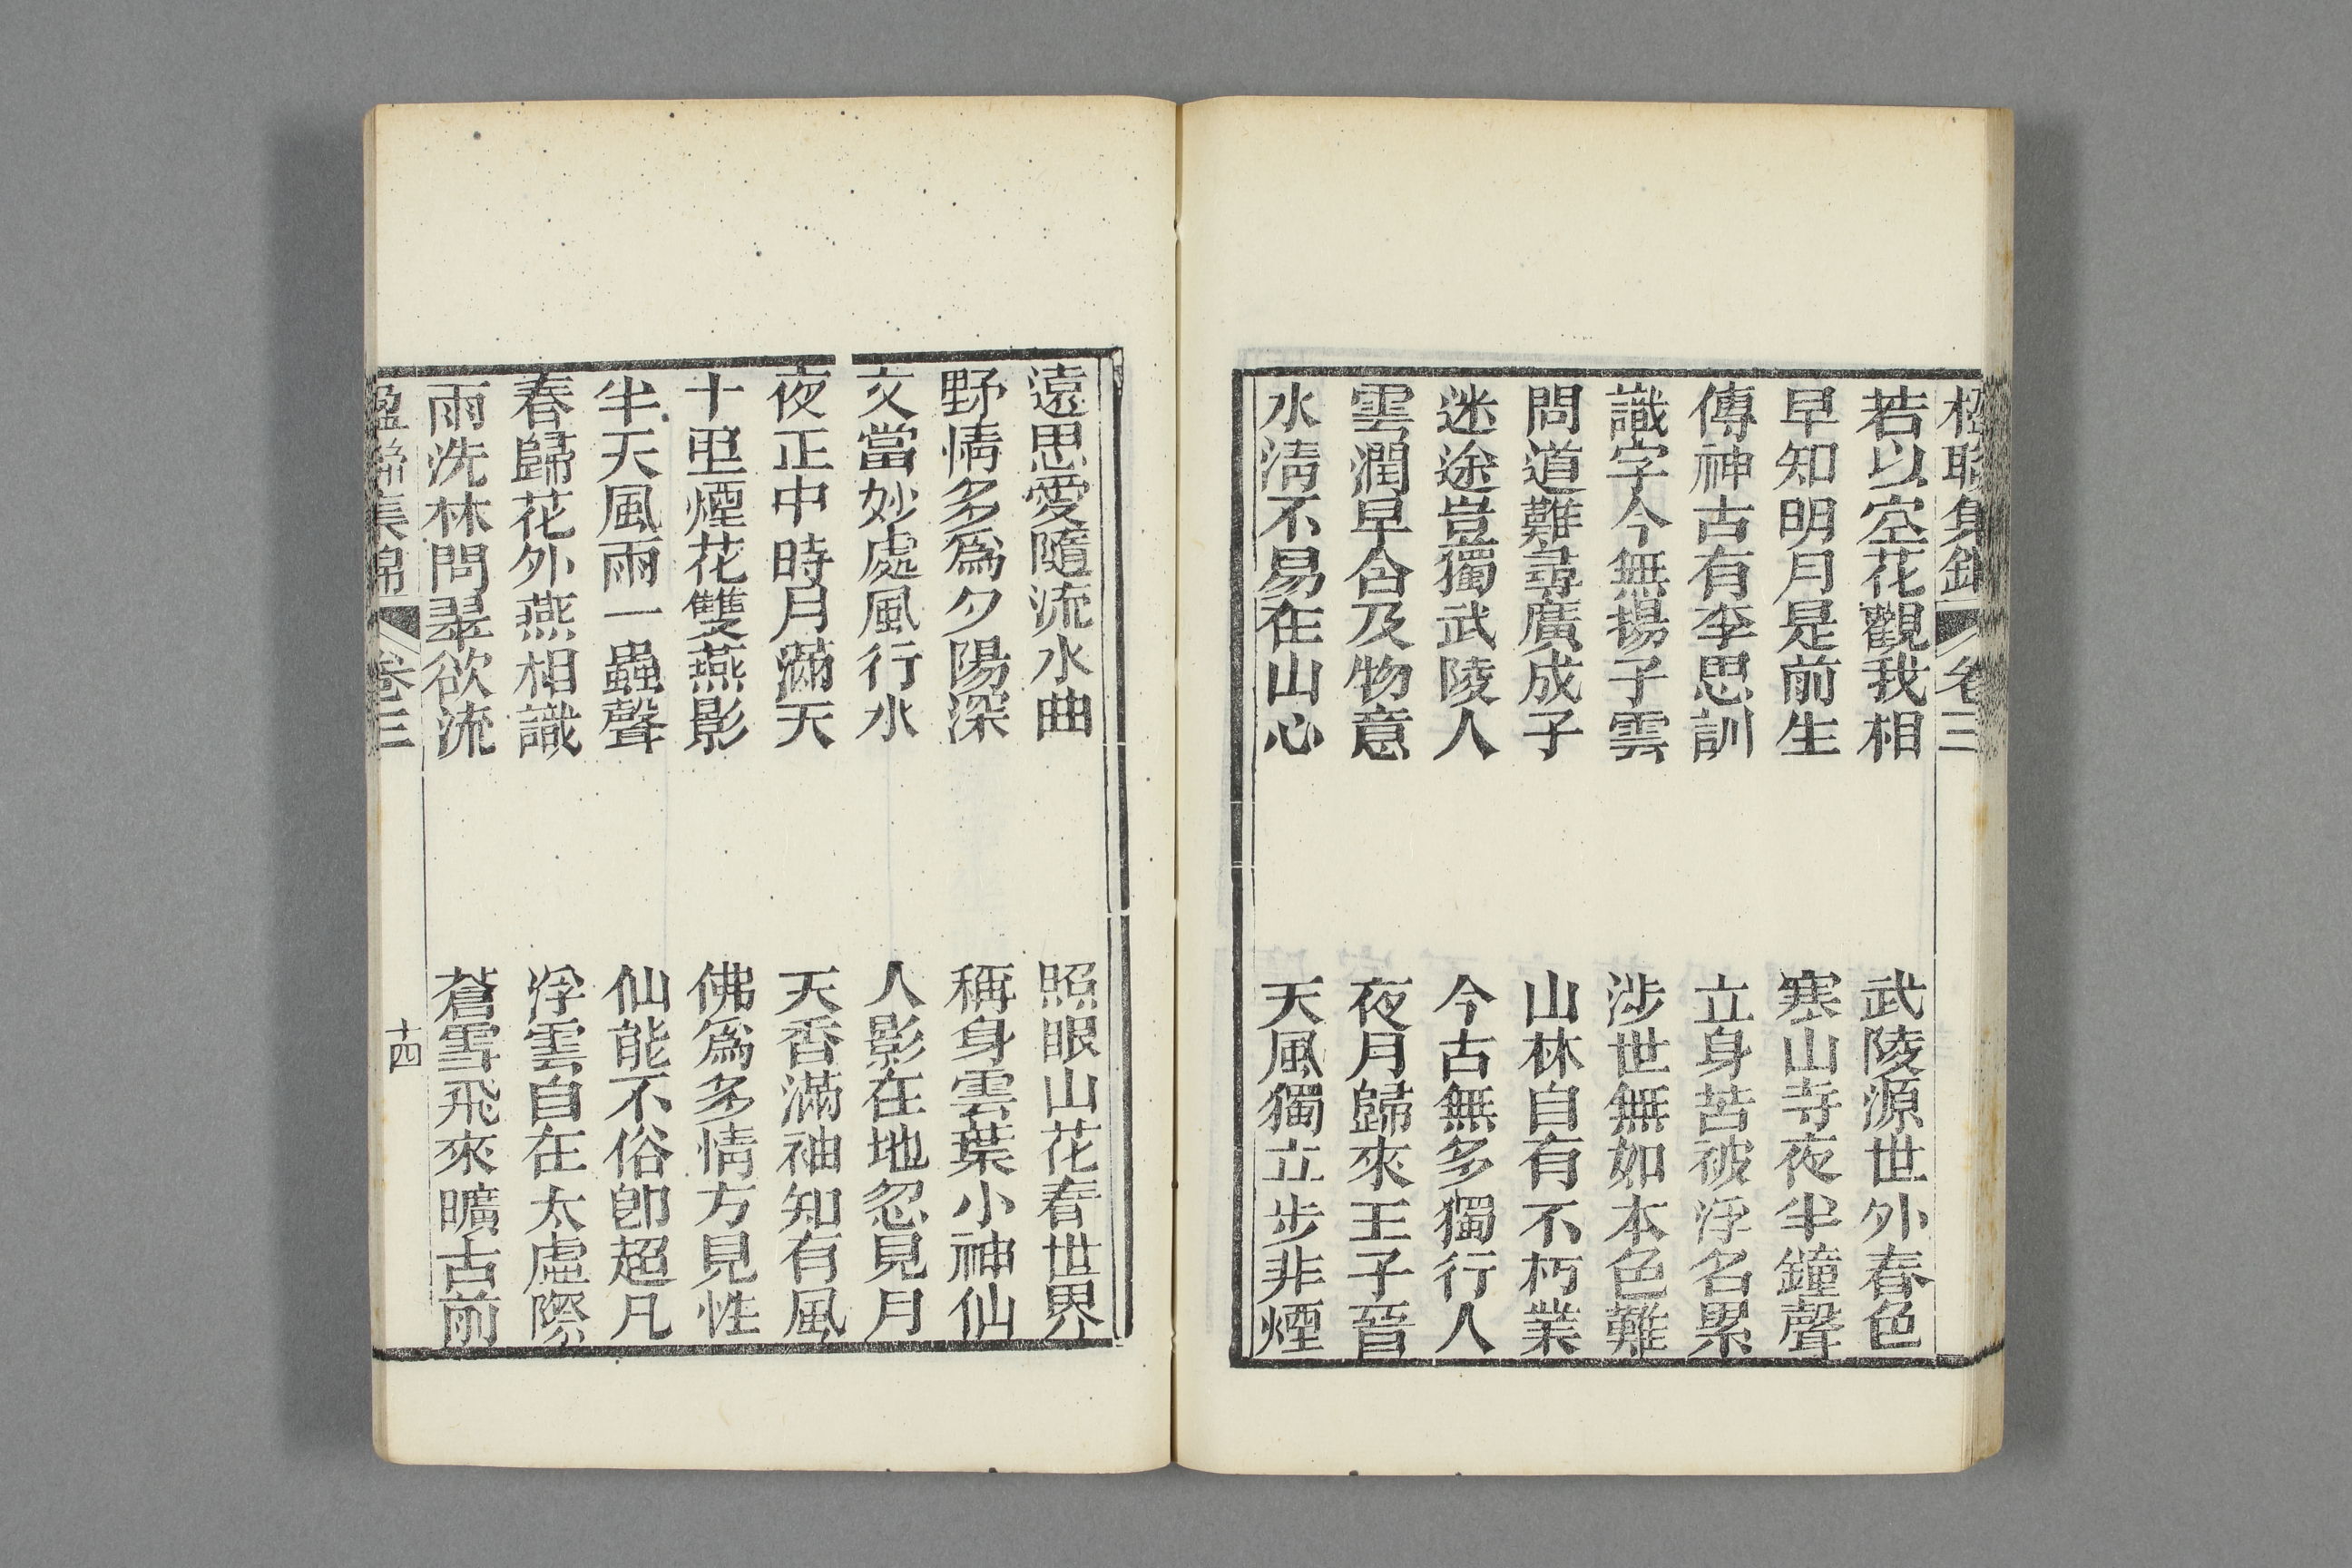 楹聯集錦 卷三
若以空花觀我相 武陵源世外春色
早知明月是前生 寒山寺夜半鐘聲
傳神古有李思訓 立身苦被浮名累
識字今無揚子雲 涉世無如本色難
問道難尋廣成子 山林自有不朽業
迷途豈獨武陵人 今古無多獨行人
雲潤早合及物意 夜月歸來王子晉
水清不易在山心 天風獨立步非煙
遠思愛隨流水曲 照眼山花春世界
野情多為夕陽深 稱身雲葉小神仙
文當妙處風行水 人影在地忽見月
夜正中時月滿天 天香滿袖知有風
十里煙花雙燕影 佛為多情方見性
半天風雨一蟲聲 仙能不俗卽超凡
春歸花外燕相識 浮雲自在太虛際
雨洗林間翠欲流 蒼雪飛來曠古前
楹聯集錦 卷三 十四